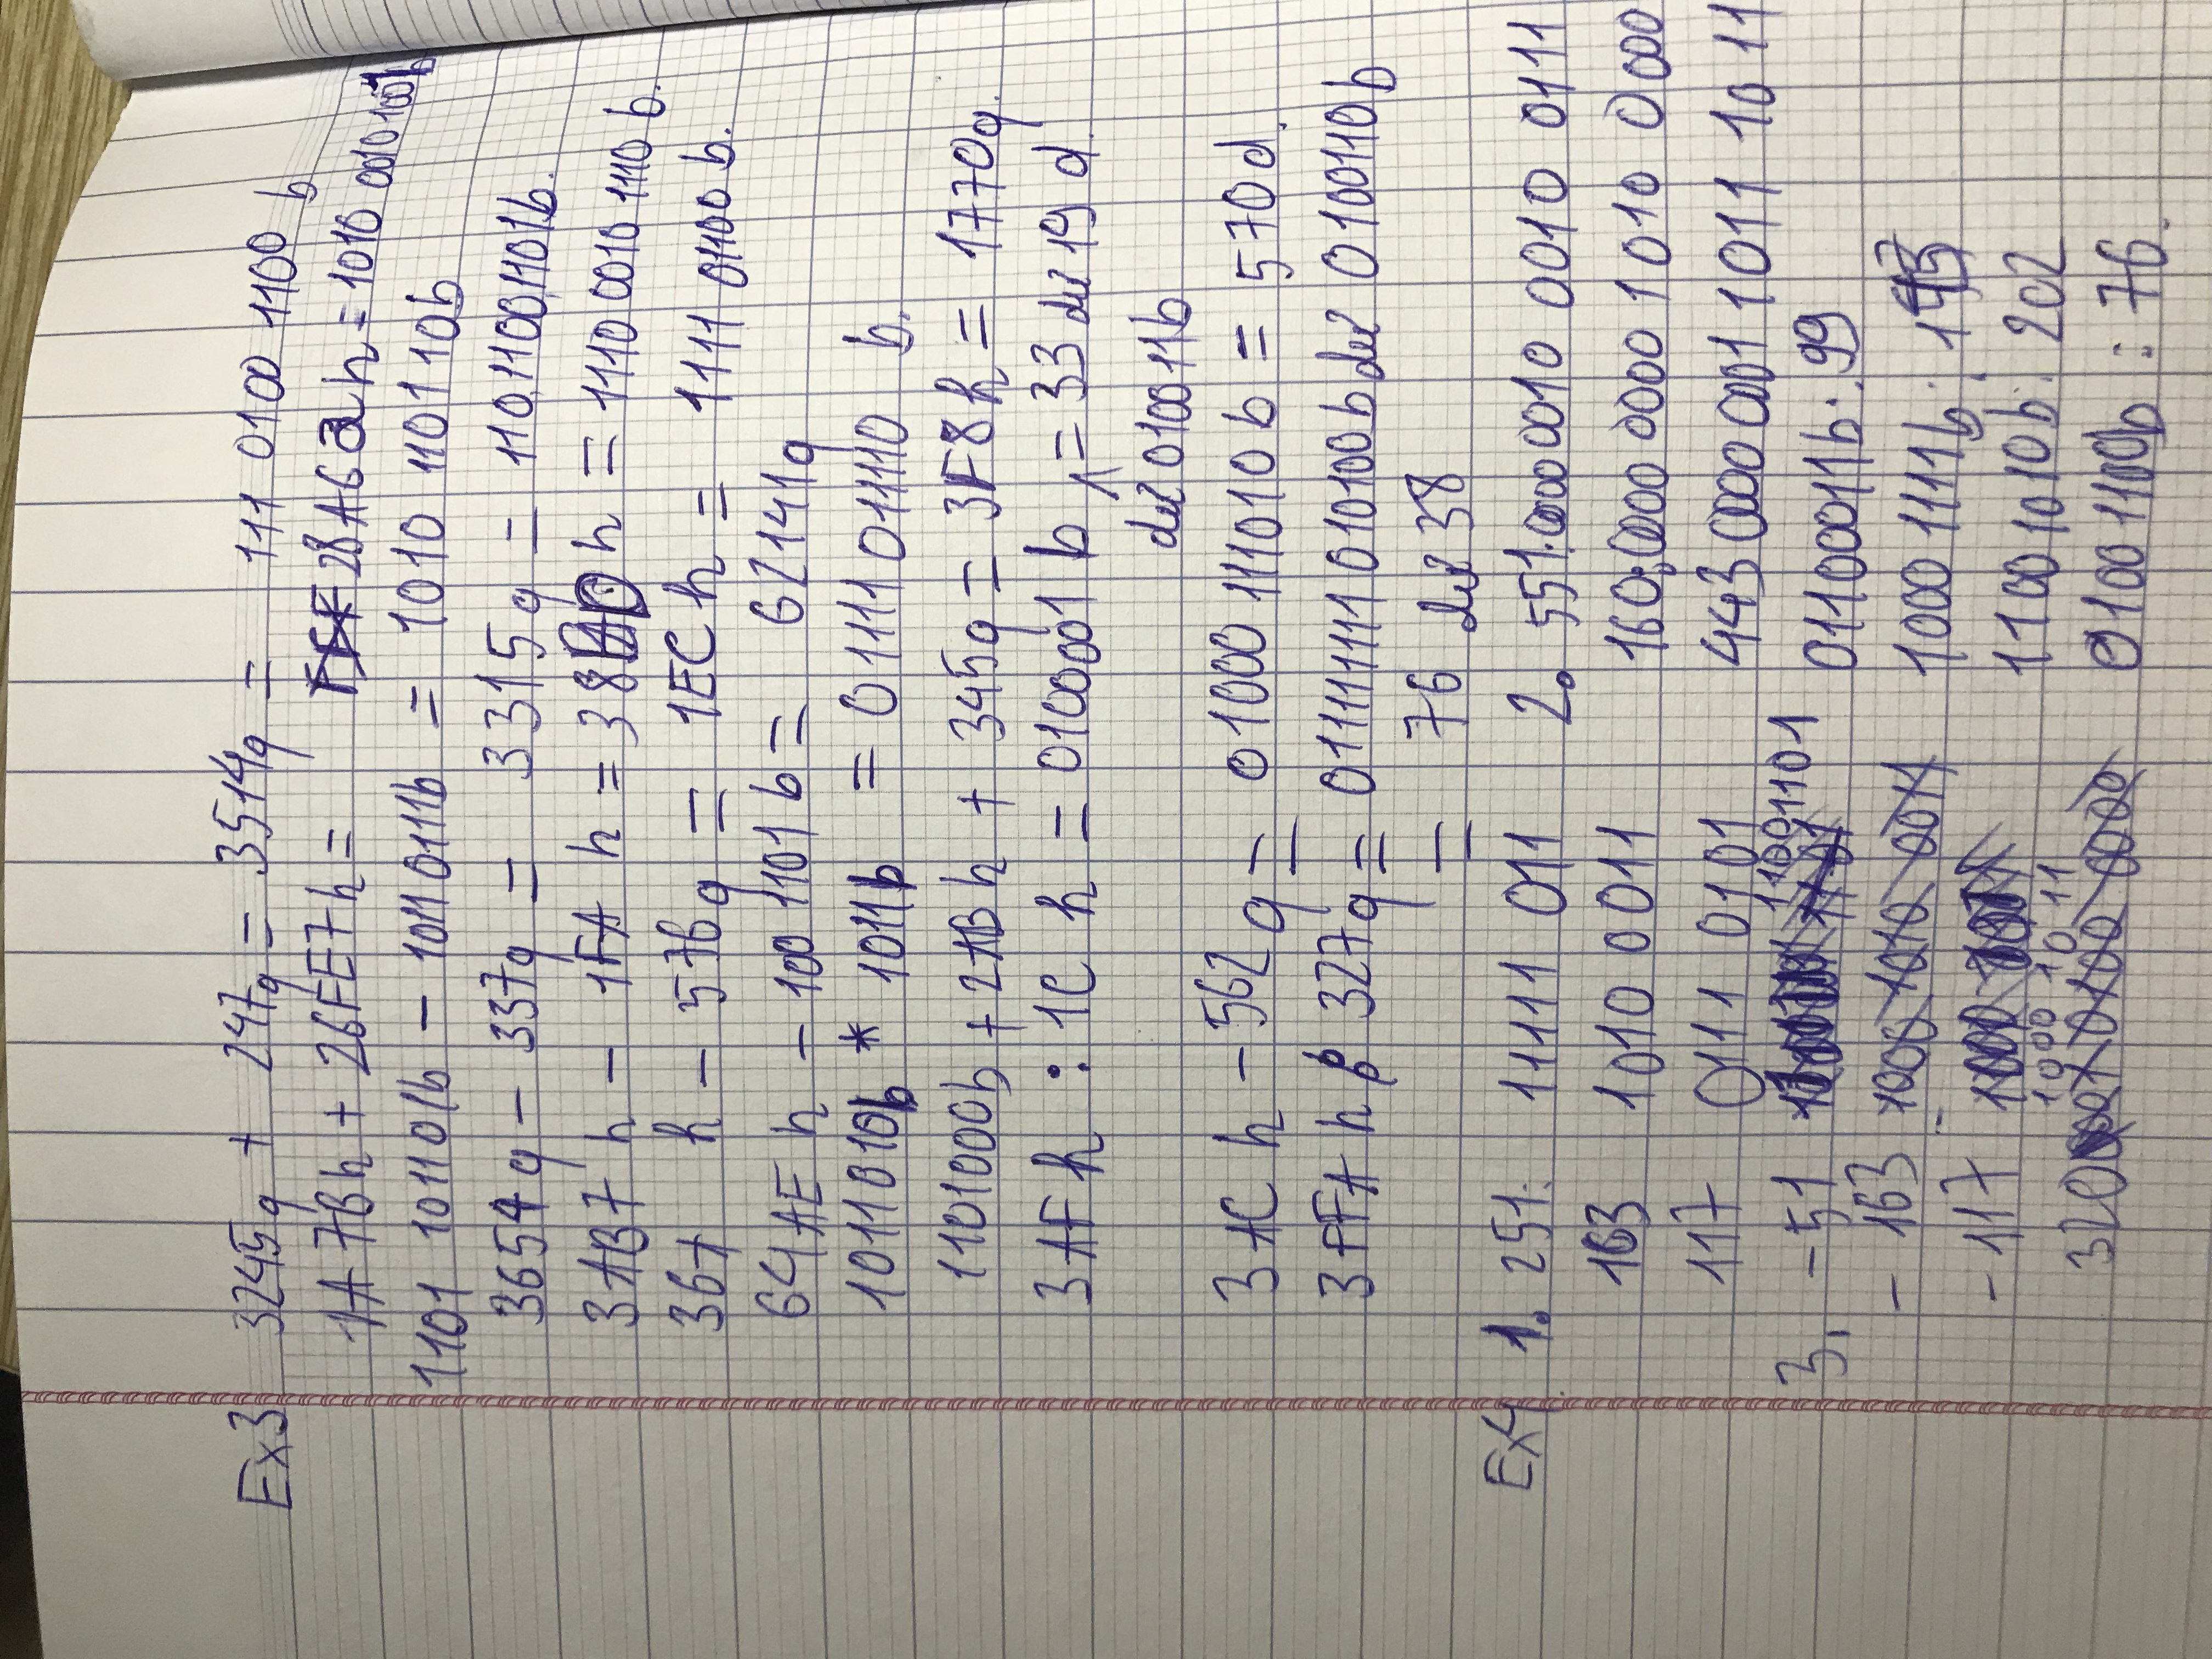 Ex3 3245q + 247q = 3514q = 111 0100 1100 b
1A7Bh + 26FE7h = 28A62h = 1010 0010 1001b
1101 101101b - 10110111b = 1010 110110b
3654q - 337q = 3315q = 110.1100.1101b.
3AB7 h - 1FA h = 38BD h = 1110 0010 1110 b.
367 h - 576q = 1EC h = 1111 01100 b.
64AE h - 100 1101 b = 62141q
1011010b * 1011b = 01111011110 b.
1101000b + 2AB h + 345q = 3F8h = 1770q.
3AF h : 1C h = 0100001 b = 33 dư 19 d.
dư 010011b
3AC h - 562 q = 01000 111010 b = 570d.
3FFA h : 327q = 011111111010100b dư 0100110b
= 76 dư 38
Ex4. 1. 251: 11111 011 2. 551: 0000 0010 0010 0111
163 1010 0011 160: 0000 0000 1010 0000
117 0111 0101 443 0000 0001 1011 1011
3. -51 1100 1101 01100011b: 99
-163 1000 1111b:
-117 1000 1011 1100 1010b: 202
320 0100 1100b : 76.